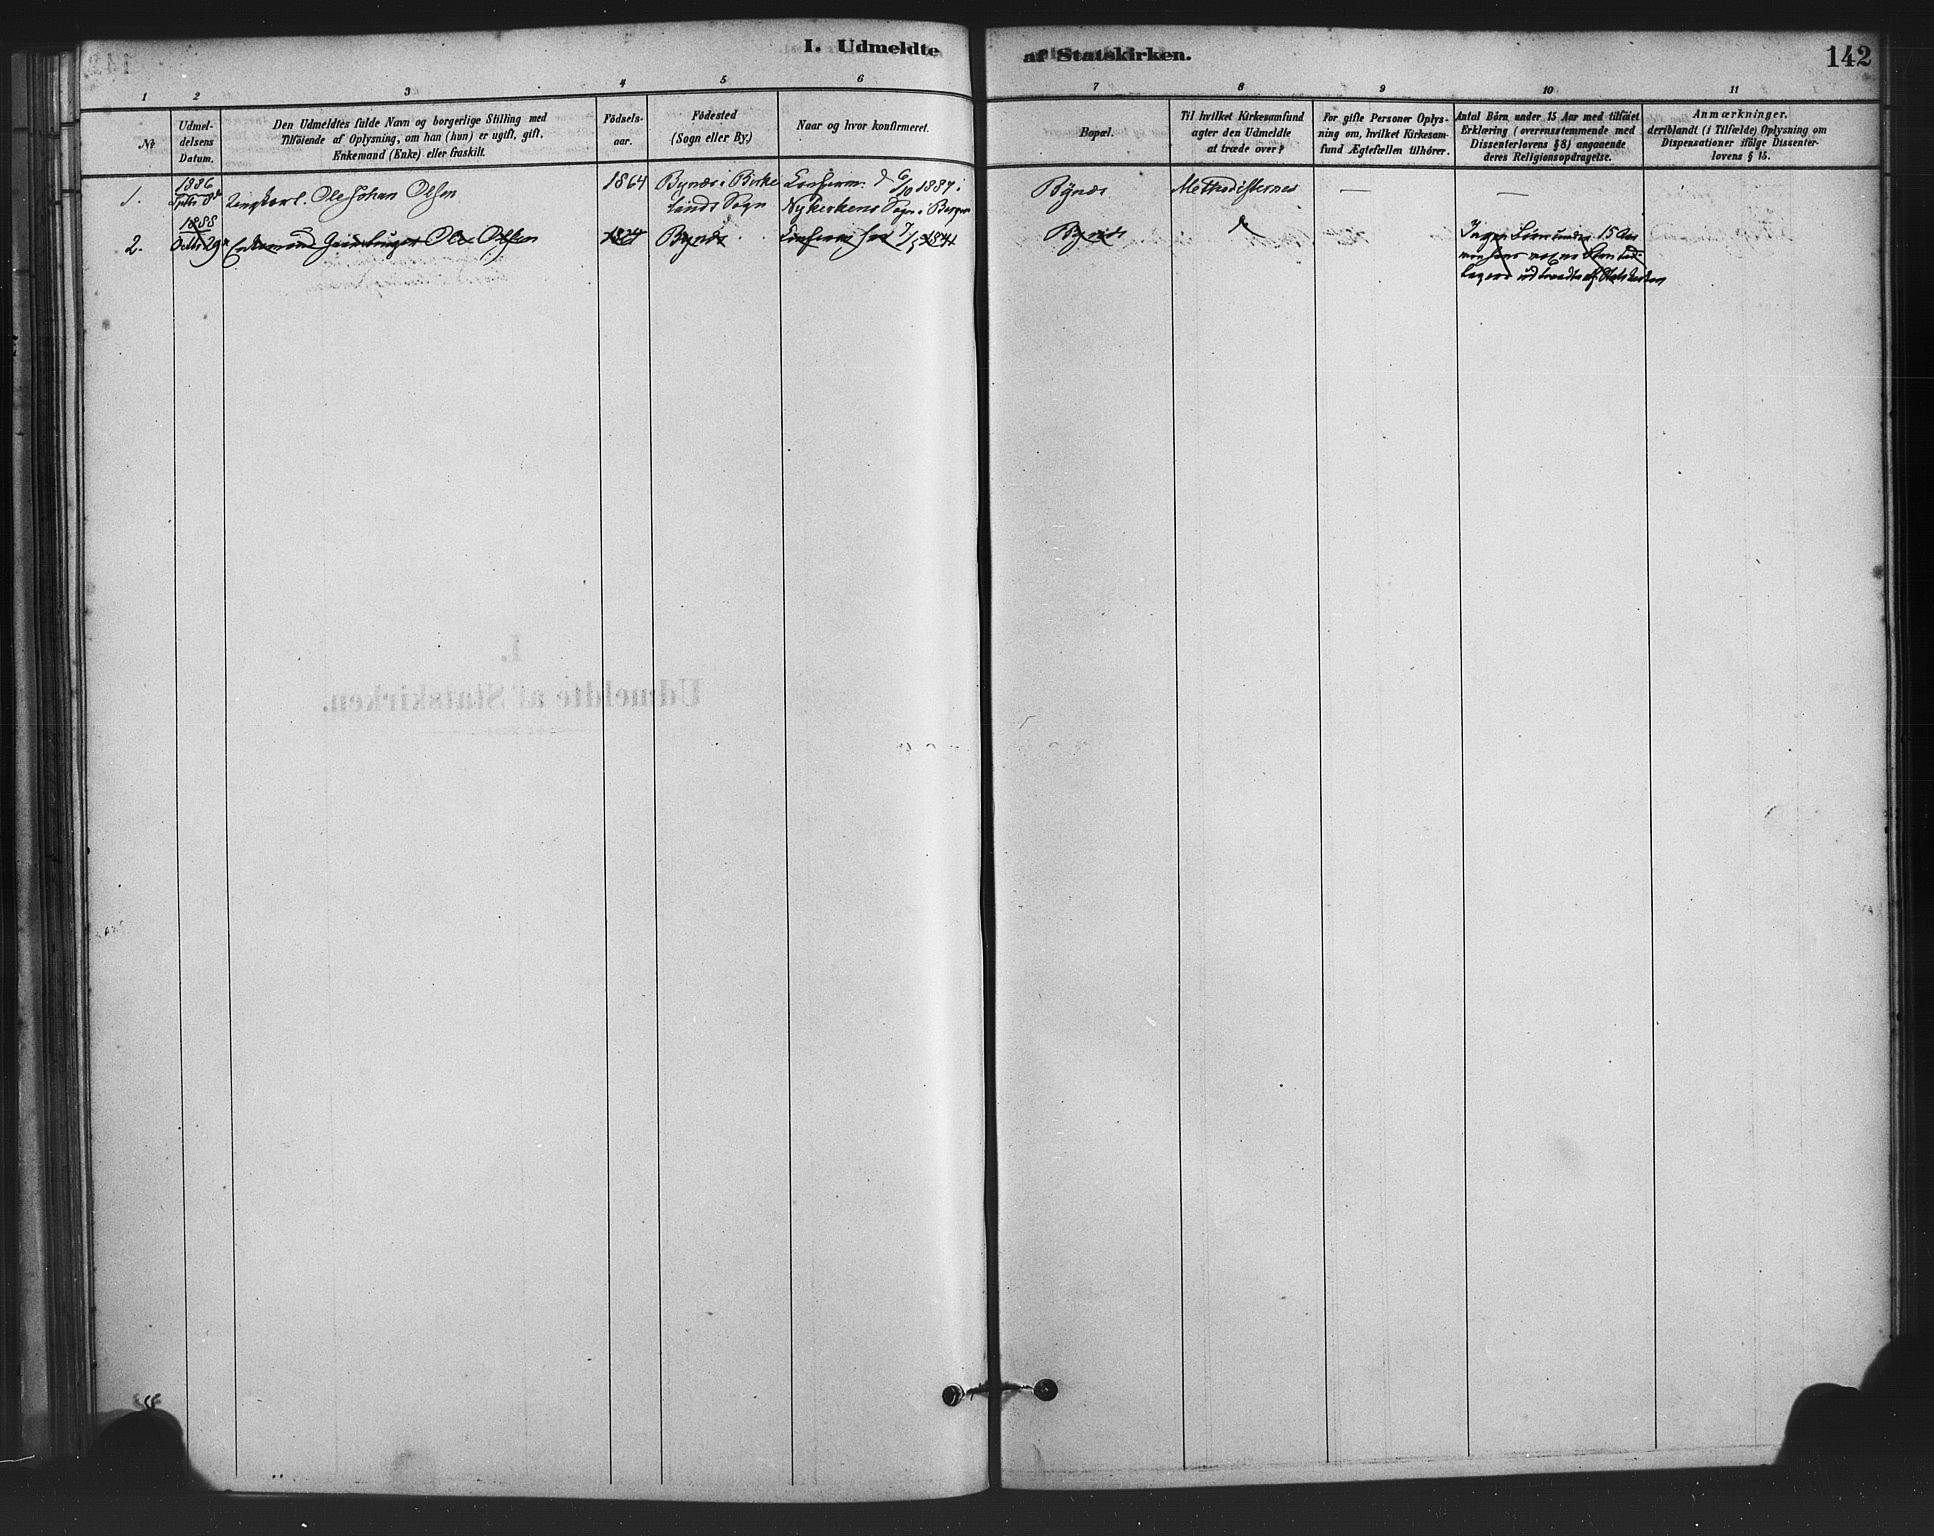 I. Udmeldte af Statskirken.
142
1 2 3 4 5 6 7 8 9 10 11
No
Udmel-
delsens
Datum.
Den Udmeldtes fulde Navn og borgerlige Stilling med
Tilföiende af Oplysning, om han (hun) er ugift, gift,
Enkemand (Enke) eller fraskilt.
Födsels-
aar.
Födested
(Sogn eller By.)
Naar og hvor konfirmeret.
Bopæl.
Til hvilket Kirkesamfund
agter den Udmeldte
at træde over?
For gifte Personer Oplys-
ning om, hvilket Kirkesam-
fund Ægtefællen tilhörer.
Antal Börn under 15 Aar med tilföiet
Erklæring (overensstemmende med
Dissenterlovens § 8) angaaende
deres Religionsopdragelse.
Anmærkninger.
deriblandt (i Tilfælde) Oplysning om
Dispensationer ifölge Dissenter-
lovens § 15.
1.
1886
Septbr 8de
Ungkarl. Ole Johan Olsen
1864
Bynæs i Birke
lands Sogn
Confirm. d 6/10 1881 i
Nykirkens Sogn i Bergen
Bynæs
Methodisternes
—
—
2.
1888
Octbr 29
Ole Olsen
Bynæs
Bynæs
Ingen Börn under 15 Aar
udtraadte af Statskirken